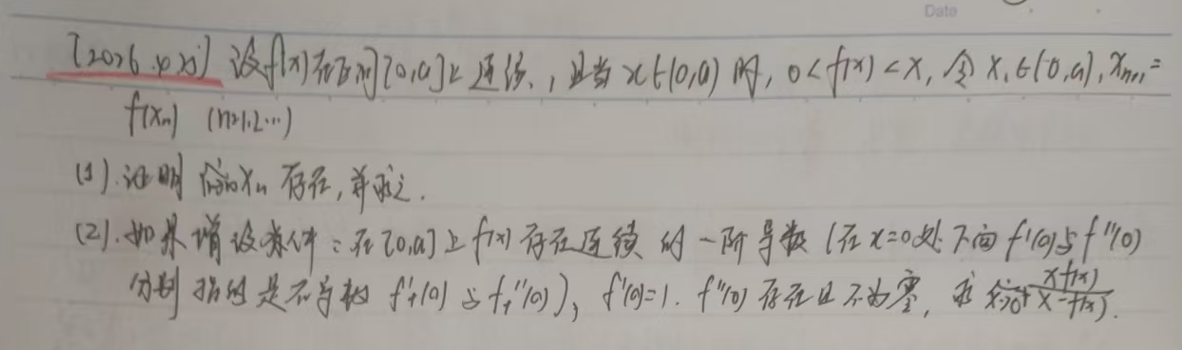 Date
[2026.4.25] 设f(x)在区间[0,a]上连续,且当x∈(0,a)时,0<f(x)<x,令X₁∈(0,a),Xₙ₊₁=
f(Xₙ) (n=1,2…)
(1).证明 lim n→∞ Xₙ 存在,并求之.
(2).如果增设条件:在[0,a]上f(x)存在连续的一阶导数(在x=0处下面f'(0)与f''(0)
分别指的是右导数f'₊(0)与f₊''(0)),f'(0)=1.f''(0)存在且不为零,求 lim x→0⁺ xf(x)/(x-f(x)).